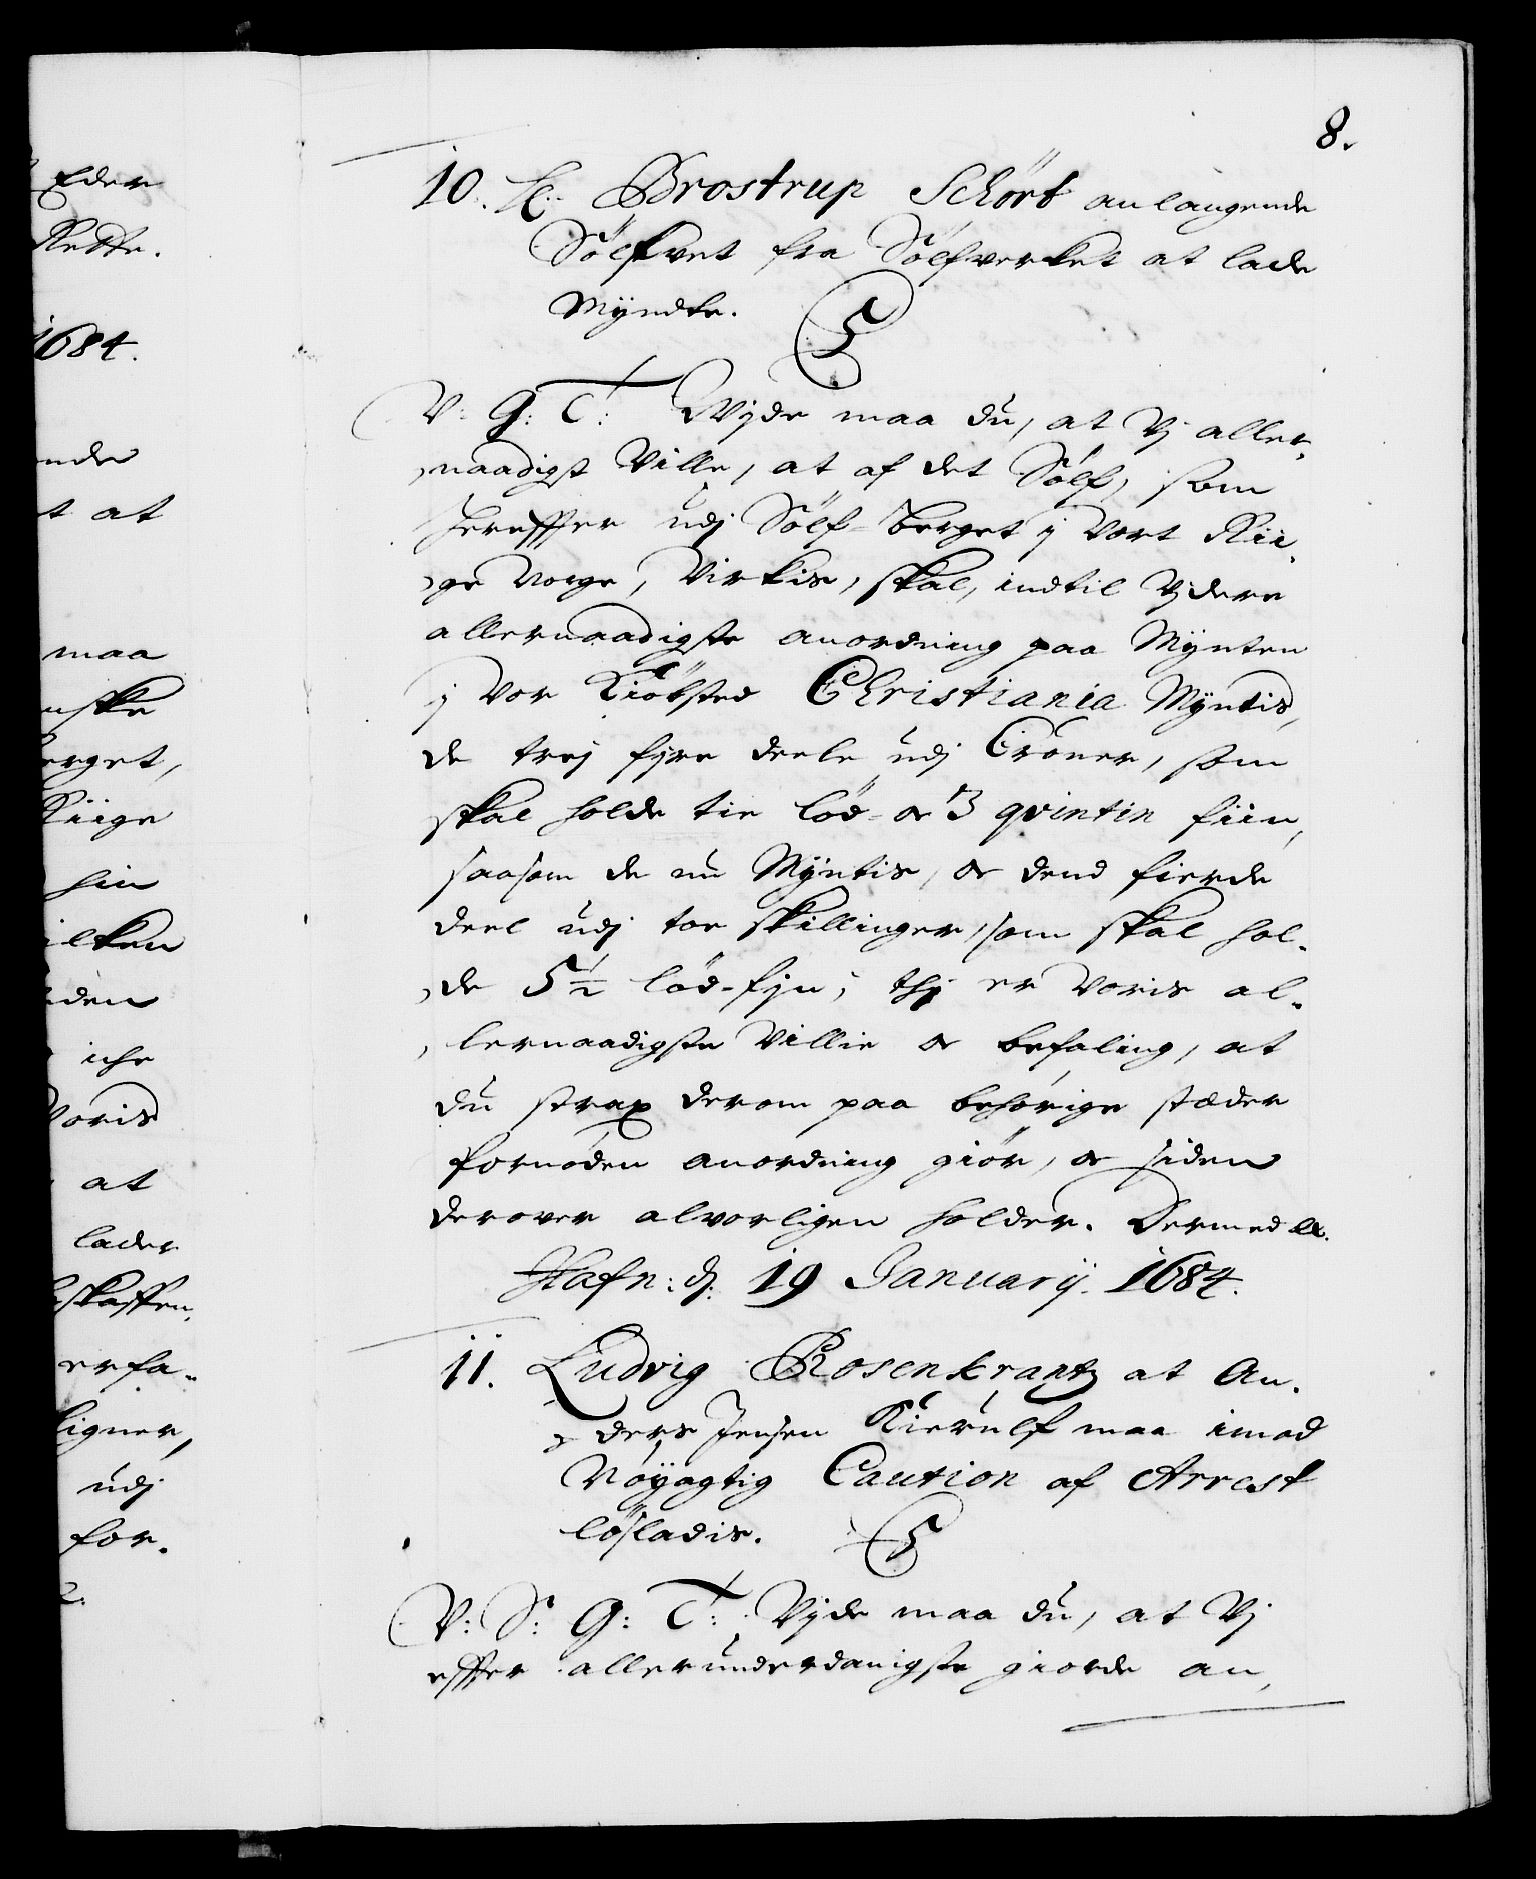 8.
10. H: Brostrup Schört anlangende
Sölfvet fra Sölfverket at lade
Myndte.
V: G: T: Wyde maa du, at Vj aller,
naadigst Ville, at af det Sölf, som
hereffter udj Sölf-berget j Vort Rii,
ge Norge, Virkis, skal, indtil Vjdere
allernaadigste anordning paa Mÿnten
j Vor Kiöbsted Christiania Mÿntis,
de trej fjre deele udj Croner, som
skal holde tie löd & 3 qvintin fiin,
saasom de nu Mÿntis, & dend fierde
deel udj toe skillinger, som skal hol,
de 5½ löd-fjn; thj er Voris al,
lernaadigste Villie & befaling, at
du strax derom paa behörige stæder
fornöden anordning giör, & siden
derover alvorligen holder. Dermed &c.
Hafn: d: 19 Januarÿ. 1684.
11. Ludvig Rosenkrantz at An,
ders Jensen Kierulf maa imod
Nöÿagtig Caution af Arrest
lösladis.
V: S: G: T: Vjde maa du, at Vj
effter allerunderdanigste giorde an,
Eder
Rette.
1684.
nde
t at
maa
nske
erget,
Riige
hin
ilken
den
iche
Voris
at
lader
skaffen,
erfa,
ligner,
udj
for,